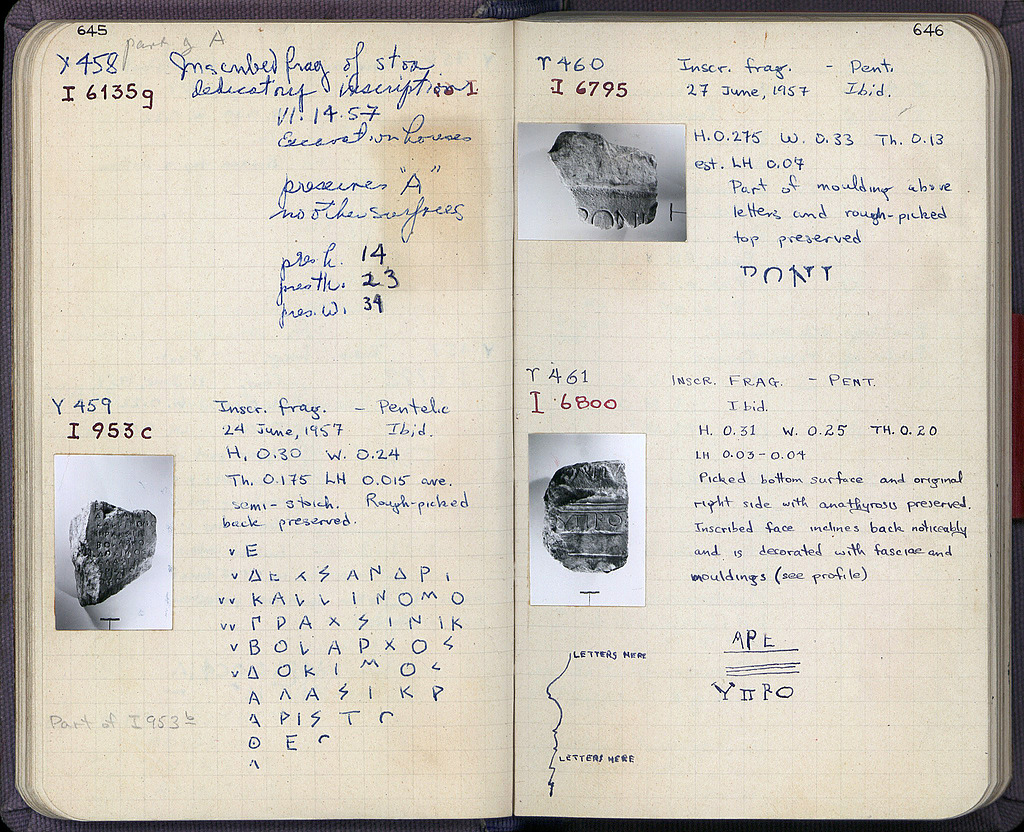 645
part of A
Y 458
I 6135g
Inscribed frag of stoa
dedicatory inscription to I
VI. 14.57
Excavation houses
preserves "A"
no other surfaces
pres h. 14
pres th. 23
pres. w. 34
Y 459
I 953 c
Inscr. frag. - Pentelic
24 June, 1957 Ibid.
H. 0.30 W. 0.24
Th. 0.175 LH 0.015 ave.
semi-stoich. Rough-picked
back preserved.
v Ε
v Δ Ε Χ S Α Ν Δ Ρ Ι
vv Κ Α L L Ι Ν Ο Μ Ο
vv Γ Ρ Α Χ S Ι Ν Ι Κ
v Β Ο L Α Ρ Χ Ο S
v Δ Ο Κ Ι Μ Ο S
Α Λ Α S Ι Κ Ρ
Α Ρ Ι S Τ Γ
Θ Ε Γ
Λ
Part of I 953 b
646
Υ 460
I 6795
Inscr. frag. - Pent.
27 June, 1957 Ibid.
H. 0.275 W. 0.33 Th. 0.13
est. LH 0.07
Part of moulding above
letters and rough-picked
top preserved
ΡΟΝΙ
Υ 461
I 6800
INSCR. FRAG. - PENT.
Ibid.
H. 0.31 W. 0.25 TH. 0.20
LH 0.03-0.04
Picked bottom surface and original
right side with anathyrosis preserved.
Inscribed face inclines back noticeably
and is decorated with fasciae and
mouldings (see profile)
LETTERS HERE
LETTERS HERE
ΑΡΕ
ΥΠΡΟ